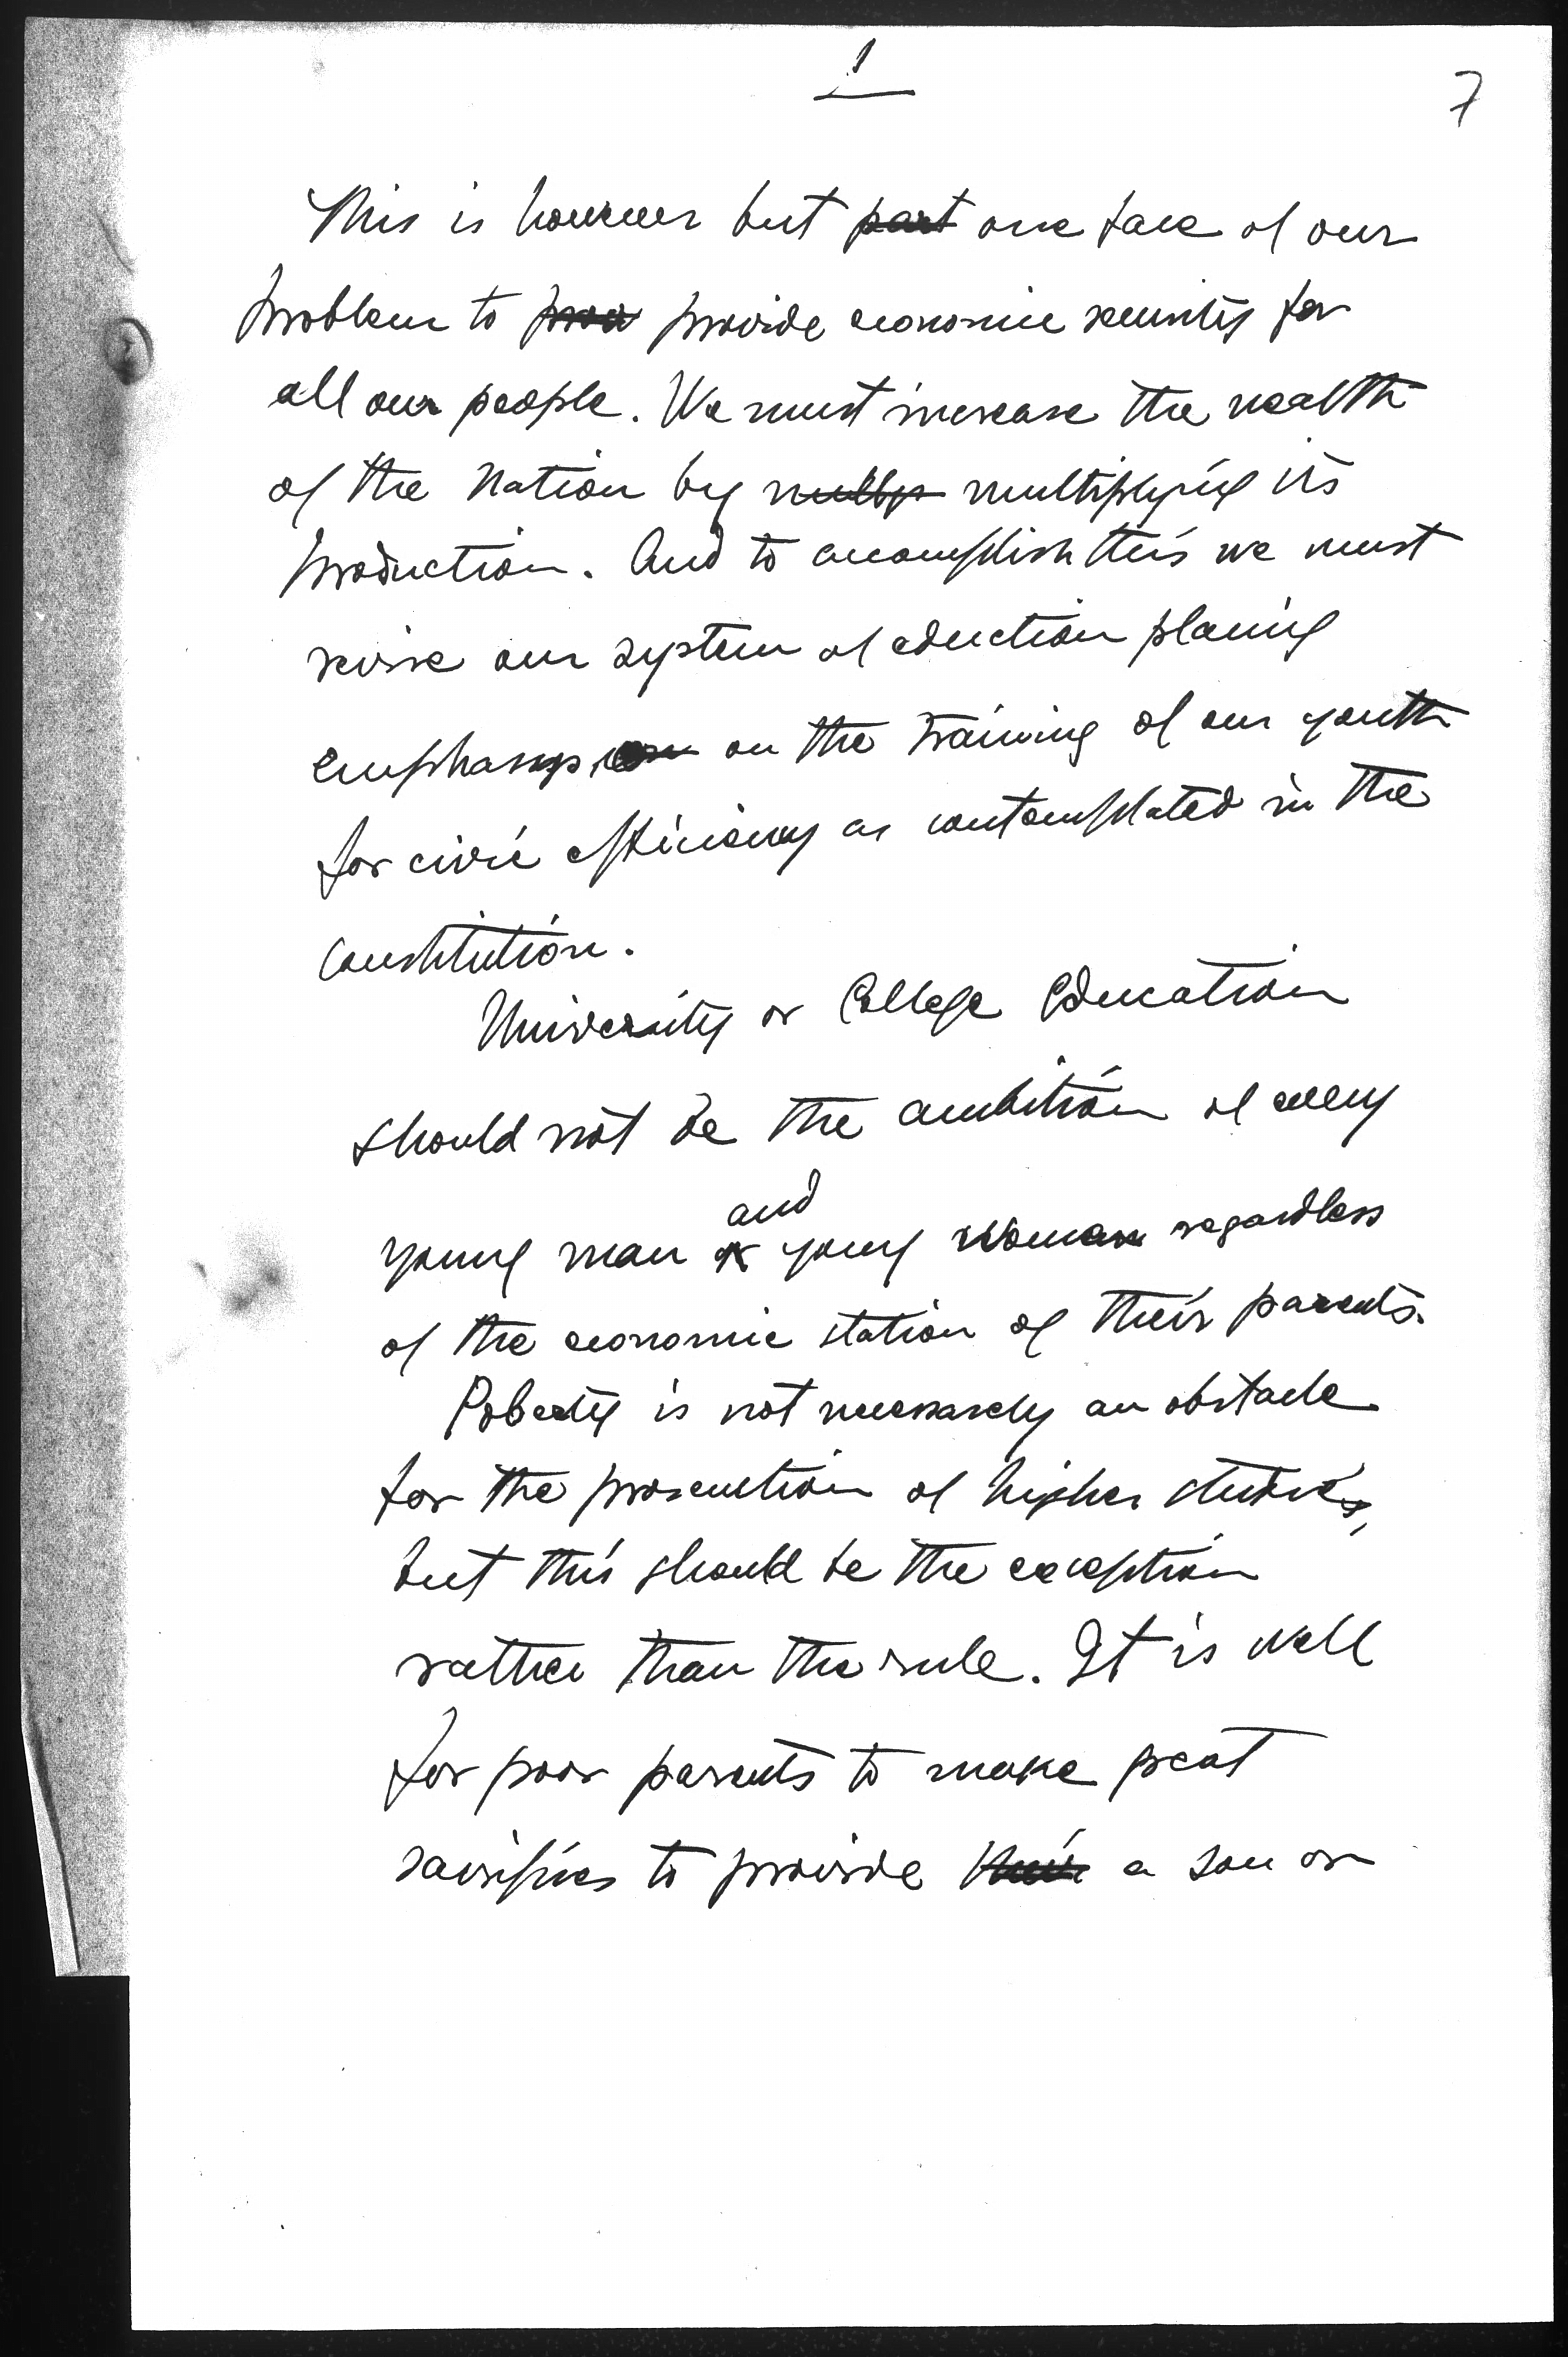 1
7
This is however but part one face of our
problem to prov provide economic security for
all our people. We must increase the wealth
of the Nation by multip multiplying its
production. And to accomplish this we must
revise our system of eduction placing
emphasys on on the training of our youth
for civic efficiency as contemplated in the
constitution.
University or College Education
should not be the ambition of every
and
young man or young woman regardless
of the economic station of their parents.
Poberty is not necessarely an obstacle
for the prosecution of higher studies,
but this should be the exception
rather than the rule. It is well
for poor parents to make great
sacrifices to provide their a son or